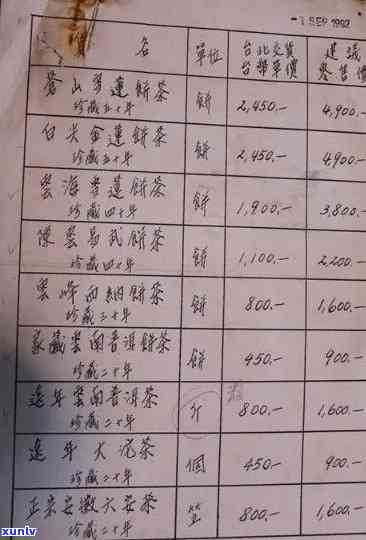 -1 SEP 1992
項 名 單位 台北交貨 建議
台幣單價 零售價
蒼山雪蓮餅茶 餅 2,450.- 4,900.-
珍藏五十年
白尖金蓮餅茶 餅 2,450.- 4,900.-
珍藏五十年
雲海雪蓮餅茶 餅 1,900.- 3,800.-
珍藏四十年
陳雲易武餅茶 餅 1,100.- 2,200.-
珍藏四十年
雲峰西納餅茶 餅 800.- 1,600.-
珍藏三十年
家藏雲南普洱餅茶 餅 450.- 900.-
珍藏二十年
遠年雲南普洱茶 斤 800.- 1,600.-
珍藏二十年
遠年大沱茶 個 450.- 900.-
珍藏二十年
正宗安徽六安茶 800.- 1,600.-
珍藏二十年
xunlv